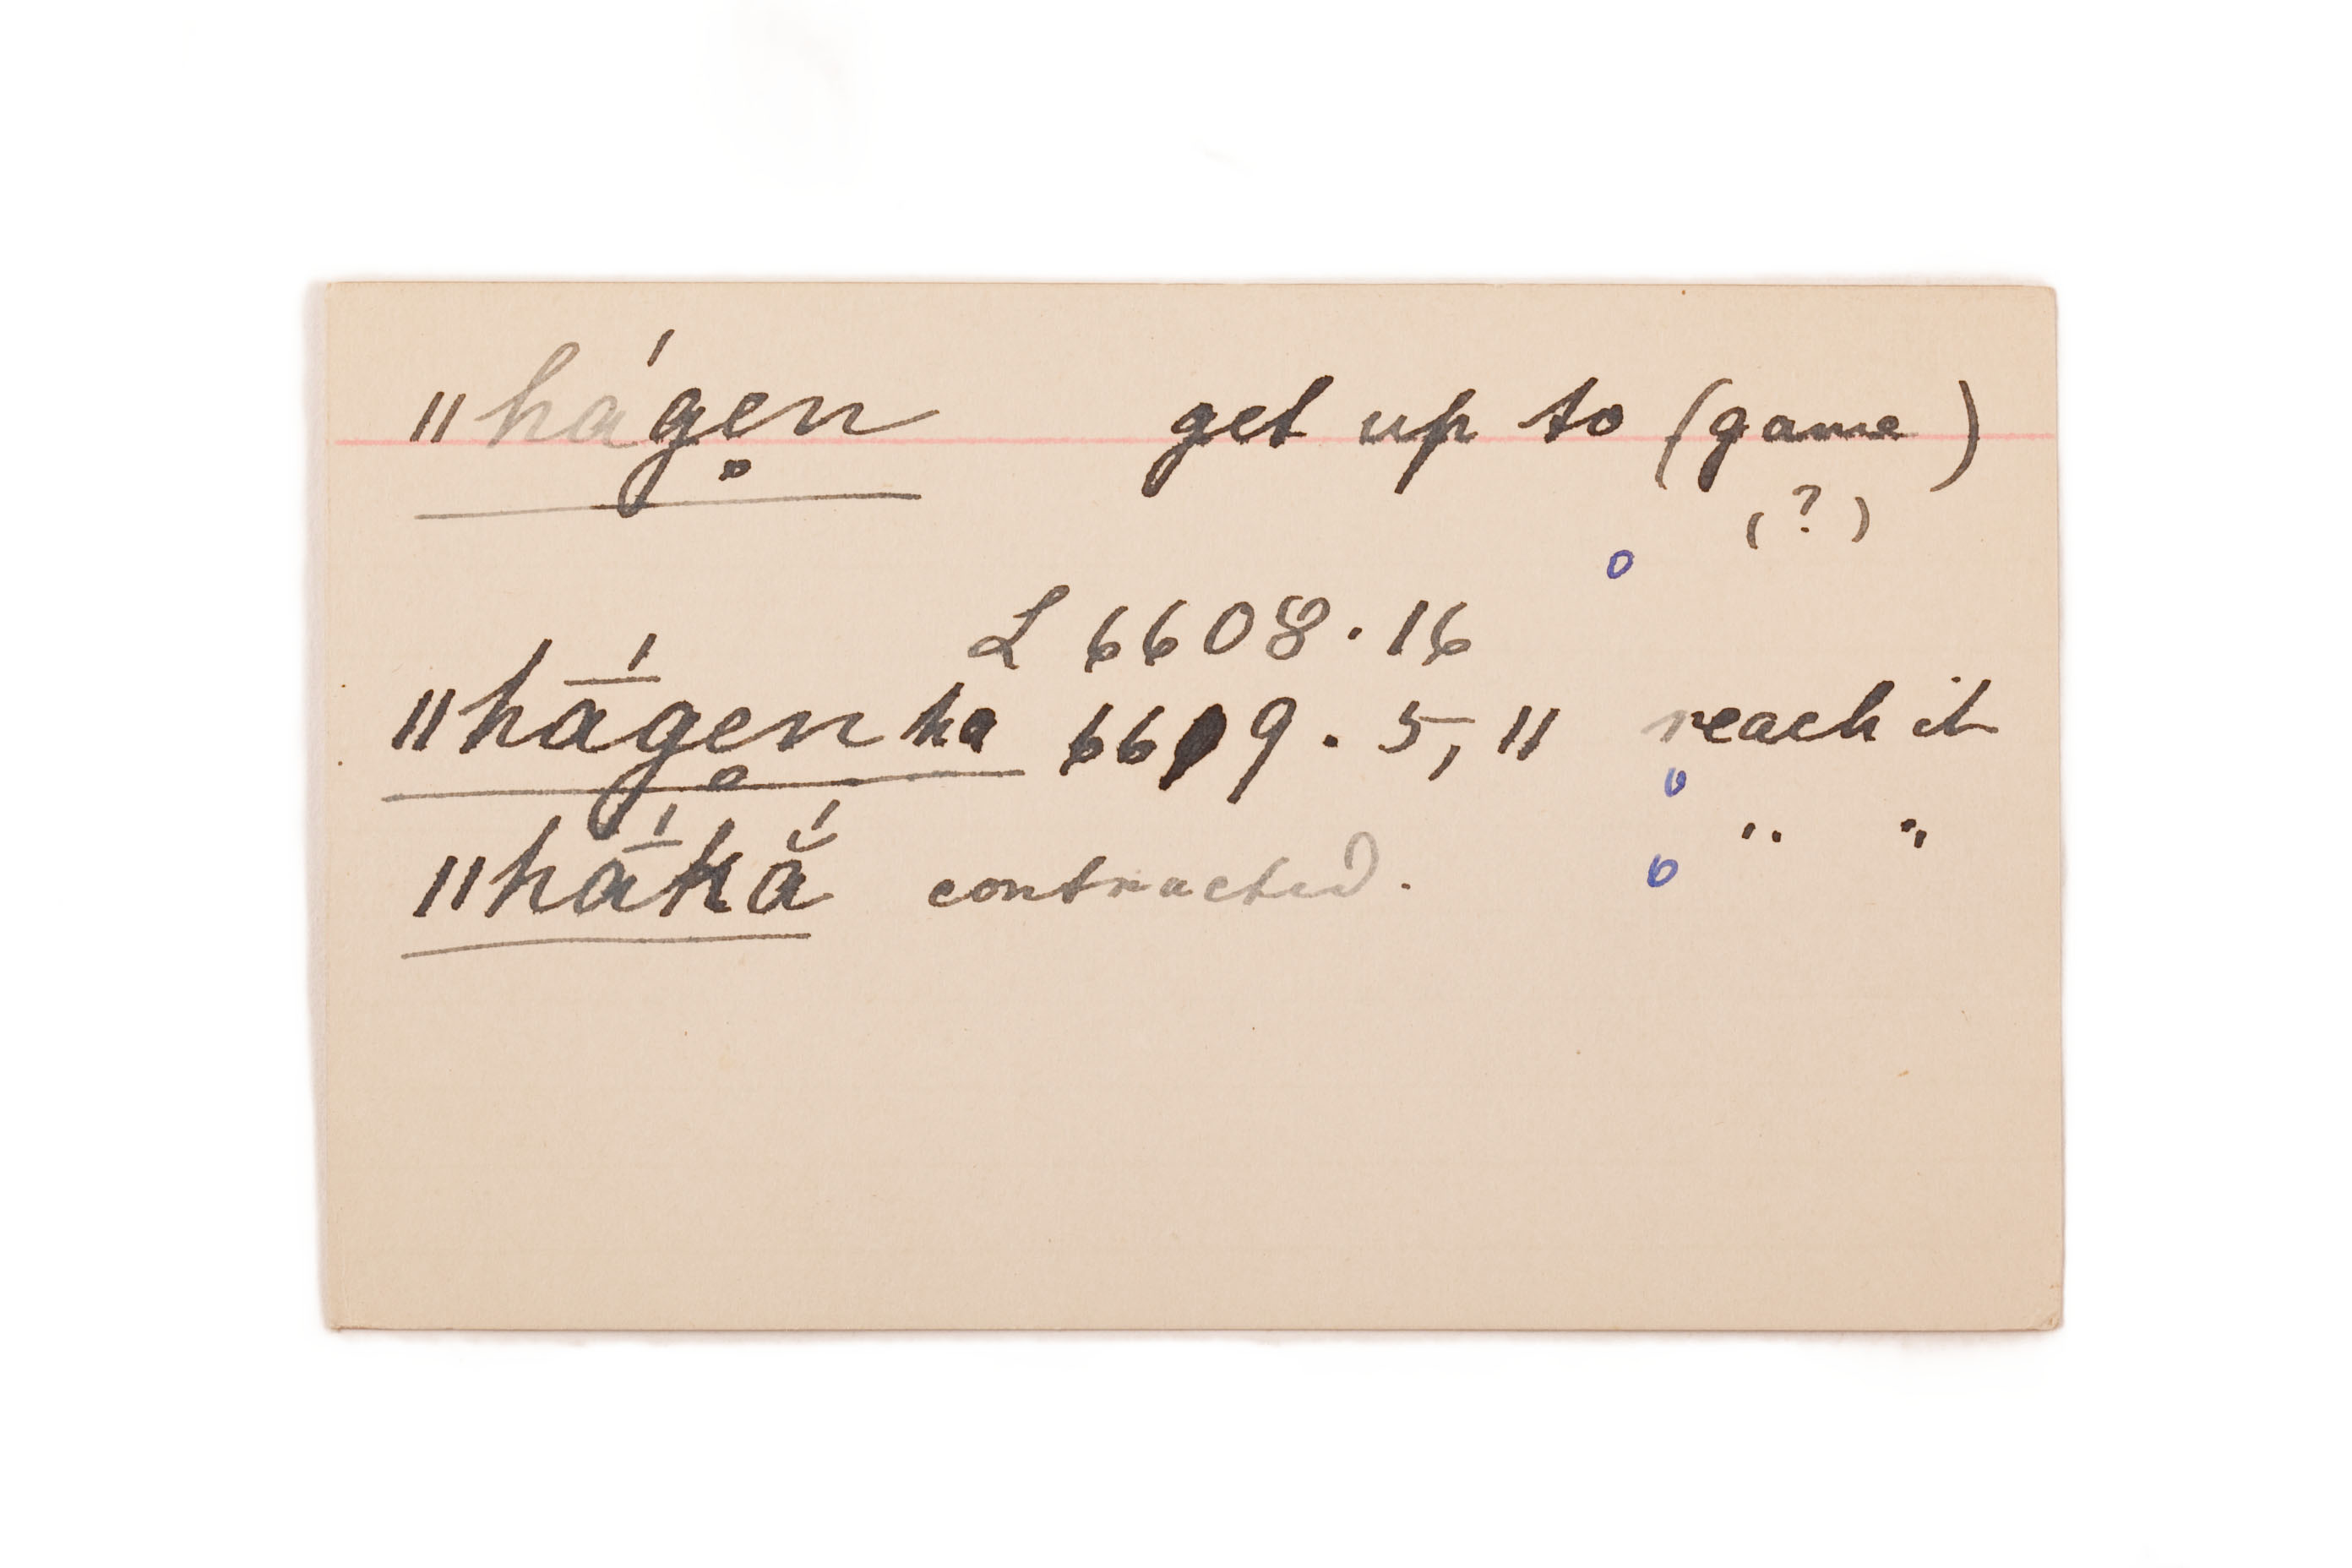 ǁháge̥n get up to (game)
(?)
L 6608.16
ǁhā́ge̥n ka 6609.5, 11 reach it
ǁhā́kắ contracted. " "